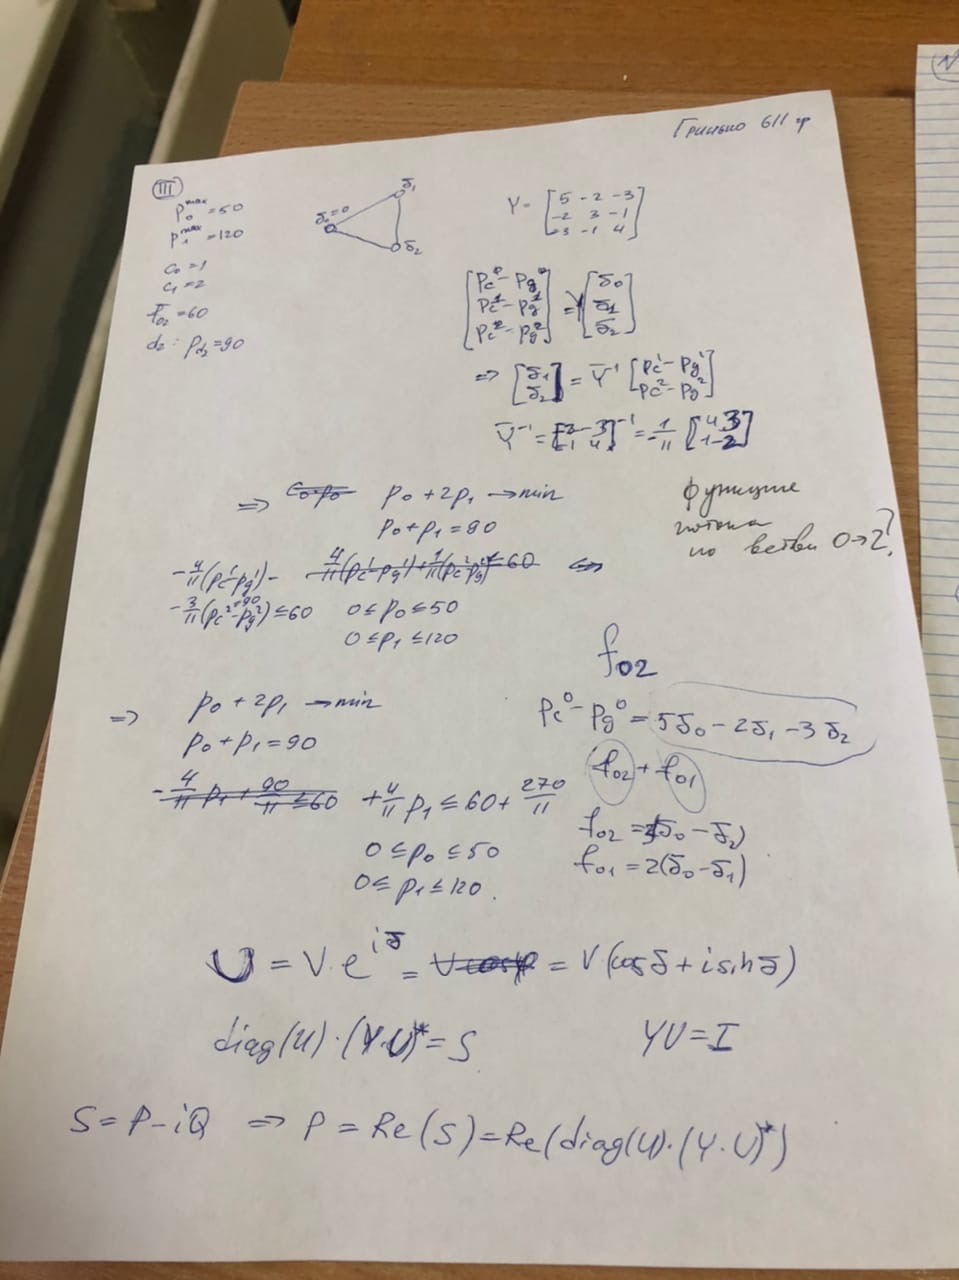 Гринько 611 гр
III
P₀ᵐᵃˣ = 50
P₁ᵐᵃˣ = 120
c₀ = 1
c₁ = 2
f̄₀₂ = 60
d₂: P_d₂ = 90
δ₀ = 0
δ₁
δ₂
Y = [5 -2 -3
-2 3 -1
-3 -1 4]
[Pc⁰ - Pg⁰
Pc¹ - Pg¹
Pc² - Pg²] = Y [δ₀
δ₁
δ₂]
=> [δ₁
δ₂] = Y̅⁻¹ [Pc¹ - Pg¹
Pc² - Pg²]
=> p₀ + 2p₁ → min
p₀ + p₁ = 90
-4/11 (Pc¹ - Pg¹) -
-3/11 (Pc² - Pg²) ≤ 60
0 ≤ p₀ ≤ 50
0 ≤ p₁ ≤ 120
функция
потока
по ветви 0→2?
=> p₀ + 2p₁ → min
p₀ + p₁ = 90
-4/11 p₁ + 90/11 ≤ 60 + 4/11 p₁ ≤ 60 + 270/11
0 ≤ p₀ ≤ 50
0 ≤ p₁ ≤ 120.
f₀₂
Pc⁰ - Pg⁰ = 5δ₀ - 2δ₁ - 3δ₂
f₀₂ + f₀₁
f₀₂ = 3(δ₀ - δ₂)
f₀₁ = 2(δ₀ - δ₁)
U = V·e^{iδ} = V(cosδ + i sinδ)
diag(U)·(Y·U)* = S
YU = I
S = P - iQ => P = Re(S) = Re(diag(U)·(Y·U)*)